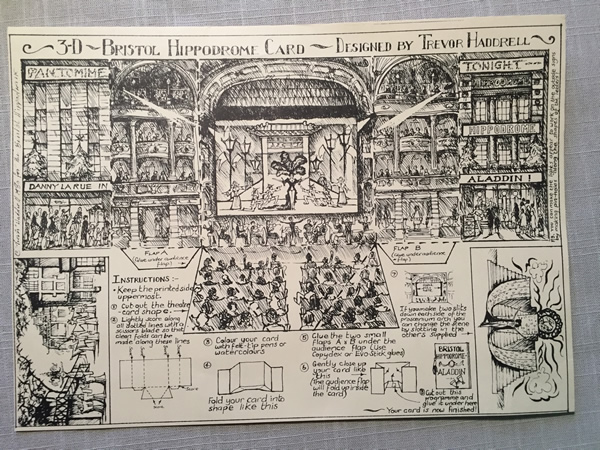 3-D ~ BRISTOL HIPPODROME CARD ~ DESIGNED BY TREVOR HADDRELL
PANTOMIME
TONIGHT
HIPPODROME
DANNY LA RUE IN
ALADDIN!
FLAP A
(Glue under audience flap)
FLAP B
(Glue under audience flap)
INSTRUCTIONS :-
• Keep the printed side uppermost.
① Cut out the theatre card shape.
② Lightly score along
all dotted lines with a
scissors blade so that
clean folds can be
made along these lines
Score
Score
③ Colour your card
with felt-tip pens or
watercolours
④
Fold your card into
shape like this
⑤ Glue the two small
flaps A & B under the
audience flap (Use
Copydex or Evo-Stick glues)
⑥ Gently close up
your card like
this
(the audience flap
will fold up inside
the card)
⑦
If you make two slits
down each side of the
proscenium arch you
can change the scene
by slotting in the
others supplied.
BRISTOL
HIPPODROME
ALADDIN
⑧ Cut out this
programme and
give it under here
Your card is now finished!